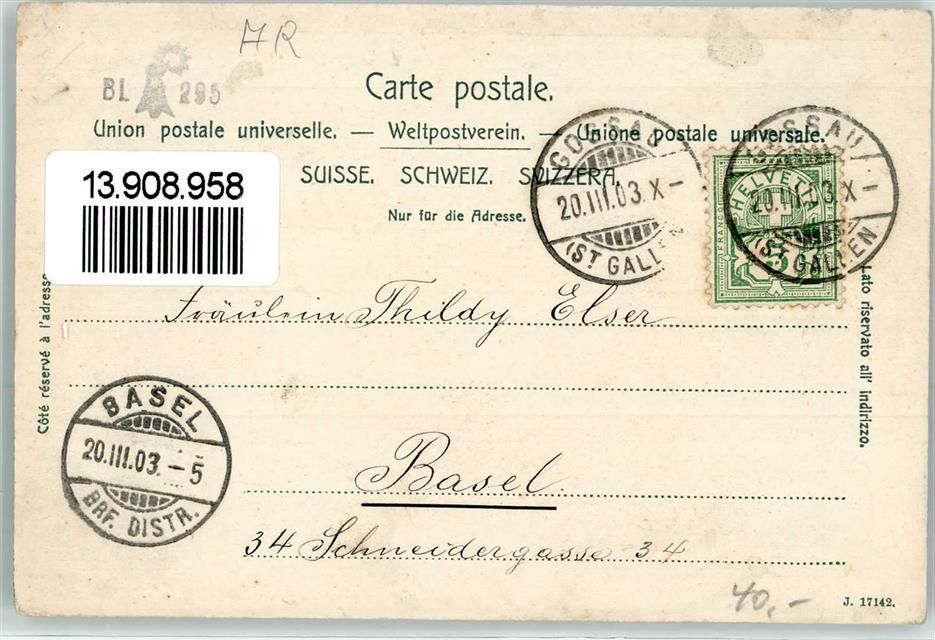 AR
BL 295
Carte postale.
Union postale universelle. — Weltpostverein. — Unione postale universale.
SUISSE. SCHWEIZ. SVIZZERA.
Nur für die Adresse.
13.908.958
GOSSAU
20.III.03. X–
(ST GALLEN
GOSSAU
20.III.03. X
(ST GALLEN
HELVETIA
FRANCO
5
Côté réservé à l'adresse
Lato riservato all' indirizzo.
Fräulein Thildy Elser
BASEL
20.III.03. – 5
BRF. DISTR.
Basel.
34 Schneidergasse 34
40,-
J. 17142.